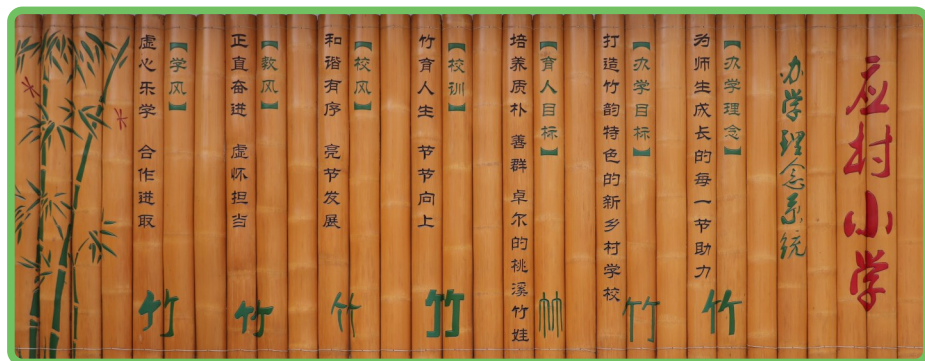 应村小学
办学理念系统
【办学理念】
为师生成长的每一节助力
竹
【办学目标】
打造竹韵特色的新乡村学校
竹
【育人目标】
培养质朴 善群 卓尔的桃溪竹娃
竹
【校训】
竹育人生 节节向上
竹
【校风】
和谐有序 亮节发展
竹
【教风】
正直奋进 虚怀担当
竹
【学风】
虚心乐学 合作进取
竹